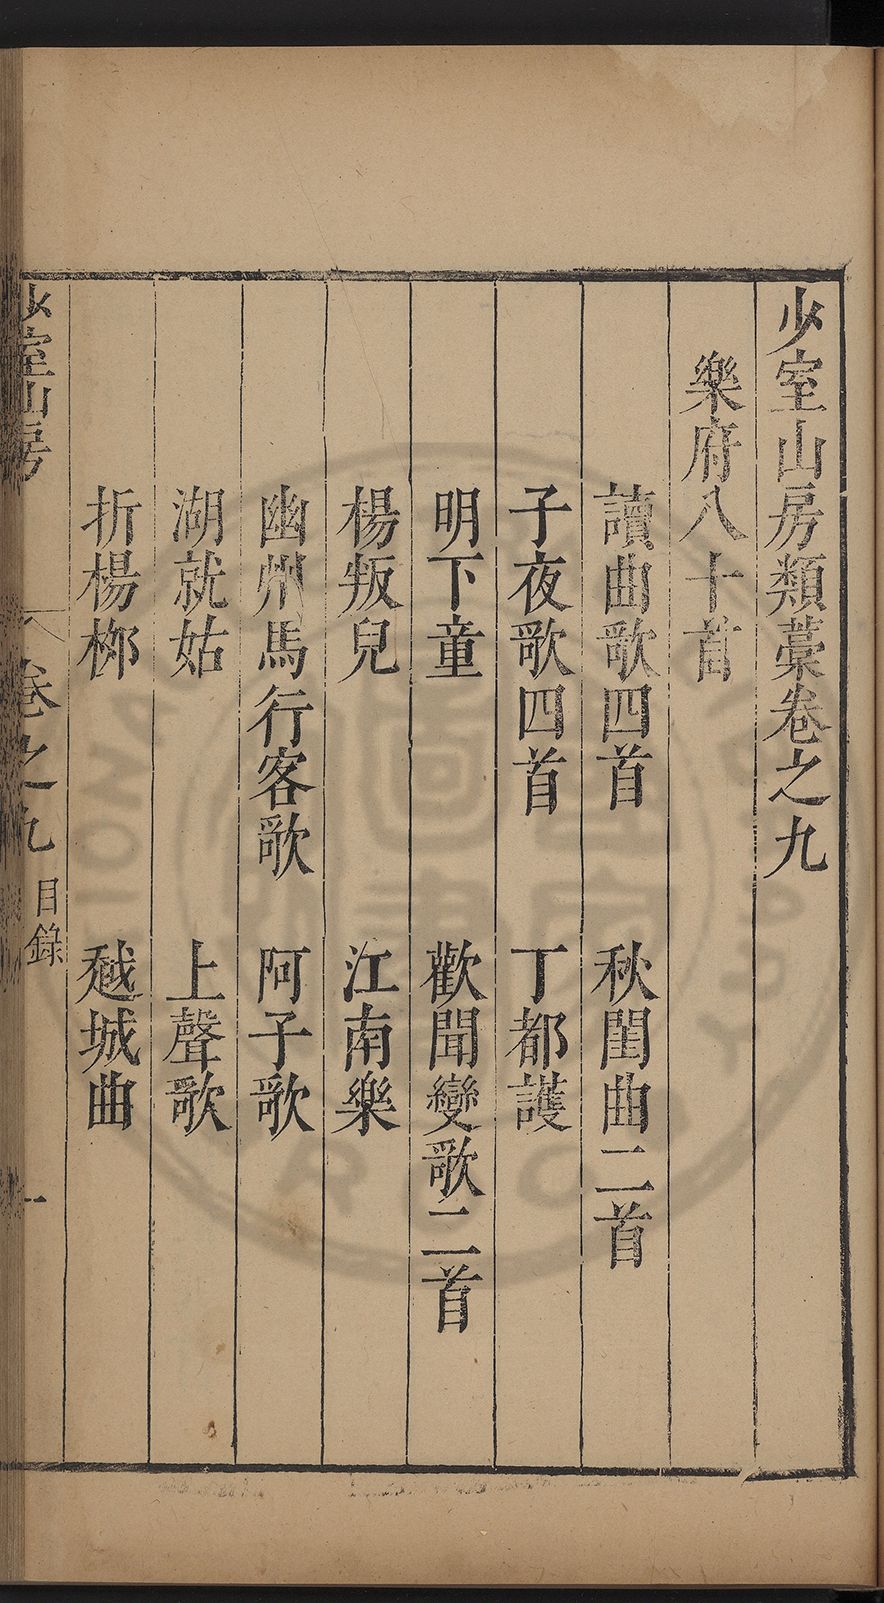 少室山房類藁卷之九
樂府八十首
讀曲歌四首　秋閨曲二首
子夜歌四首　丁都護
明下童　歡聞變歌二首
楊叛兒　江南樂
幽州馬行客歌　阿子歌
湖就姑　上聲歌
折楊栁　越城曲
少室山房　卷之九　目錄　一